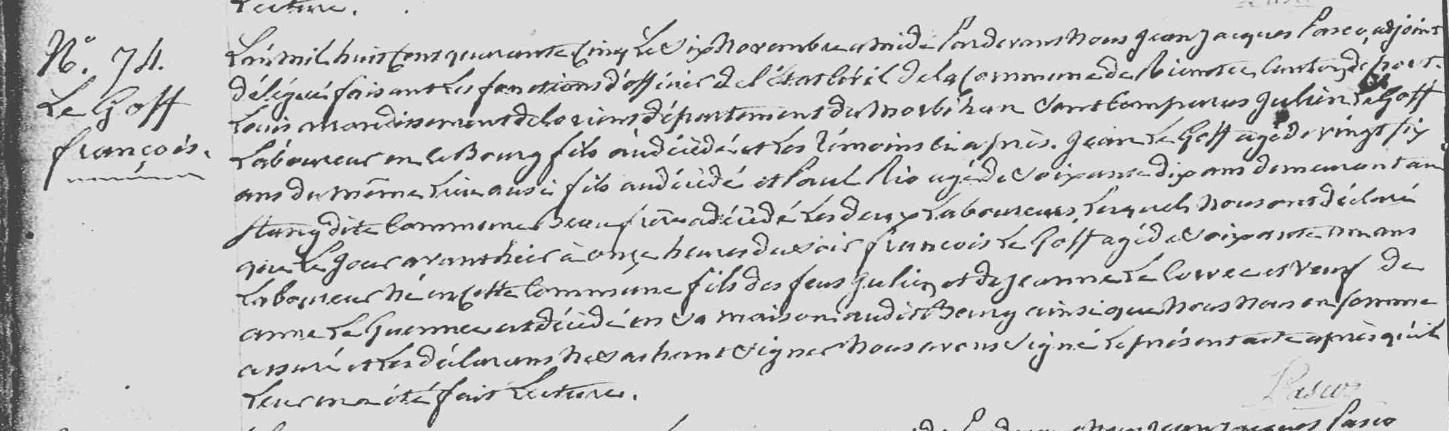 Lecture.
N° 74.
Le Goff
françois.
L'an mil huit cent quarante cinq le dix Novembre a midi Pardevant Nous Jean Jacques Pasco, adjoint
délégué faisant les fonctions d'officier de l'état Civil de la Commune de Riantec, Canton de port-
Louis arrondissement de Lorient département du Morbihan Sont Comparus Julien Le Goff
Laboureur en le Bourg fils au décédé et Les témoins ci après. Jean Le Goff agé de vingt six
ans du même Lieu aussi fils au décédé et Paul Rio agé de Soixante dix ans demeurant au
Stang dite Commune Beau frère au décédé Les deux Laboureurs, Lesquels Nous ont déclaré
que Le Jour avant hier à onze heures du soir françois Le Goff agé de Soixante un ans
Laboureur Né en Cette Commune fils des feus Julien et de Jeanne Le Corvec et veuf de
anne Le Guennec est décédé en Sa maison audit Bourg ainsi que Nous Nous en Somme
assuré et Les déclarans Ne Sachant Signer Nous avons Signé Le présent acte après qu'il
Leur en a été fait Lecture.
Pasco
Jean Jacques Pasco